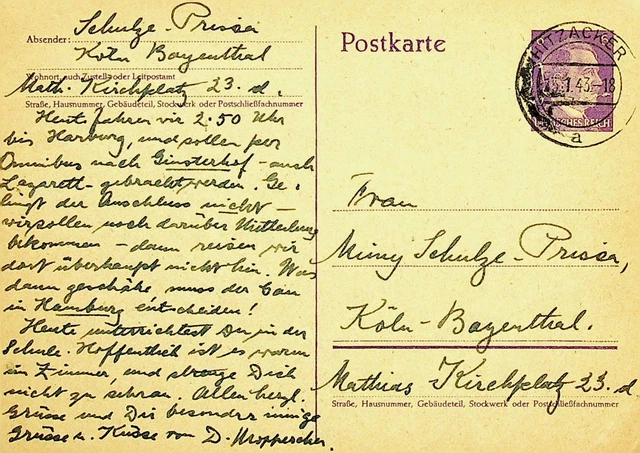 Absender: Schulze-Prissa
Köln Bayenthal
Wohnort, auch Zustell- oder Leitpostamt
Math. Kirchplatz 23. d.
Straße, Hausnummer, Gebäudeteil, Stockwerk oder Postschließfachnummer
Heute fahren wir 2.50 Uhr
bis Harburg, und sollen per
Omnibus nach Ginsterhof - auch
Lazarett - gebracht werden. Ge-
lingt der Anschluss nicht -
wir sollen noch darüber Mitteilung
bekommen - dann reisen wir
dort überhaupt nicht hin. Was
dann geschähe, muss der Gau
in Hamburg entscheiden!
Heute unterrichtest Du in der
Schule. Hoffentlich ist es warm
im Zimmer, und Dich
nicht zu sehr an. Allen herzl.
Grüsse und Dir besonders innige
Grüsse u. Küsse von D.
Postkarte
HITZACKER
1.43-18
a
DEUTSCHES REICH
Frau
Mimy Schulze-Prissa,
Köln-Bayenthal.
Mathias Kirchplatz 23. d
Straße, Hausnummer, Gebäudeteil, Stockwerk oder Postschließfachnummer